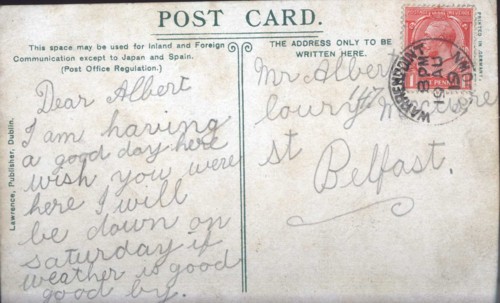 POST CARD.
This space may be used for Inland and Foreign
Communication except to Japan and Spain.
(Post Office Regulation.)
THE ADDRESS ONLY TO BE
WRITTEN HERE.
Dear Albert
I am having
a good day here
wish you were
here I will
be down on
saturday if
weather is good
good by.
Mr Albert
117
St
Belfast.
WARRENPOINT
3 PM
PRINTED IN GERMANY
Lawrence, Publisher, Dublin.